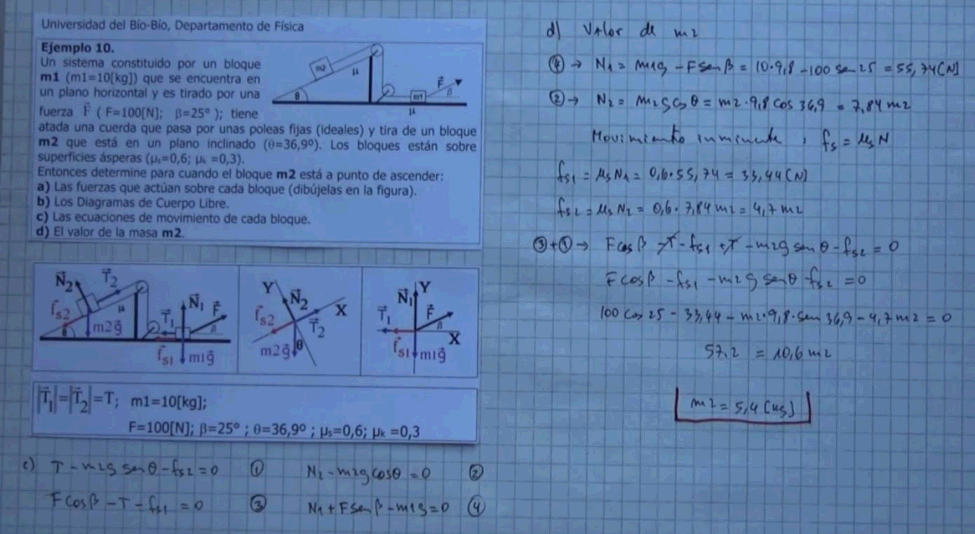 Universidad del Bío-Bío, Departamento de Física
Ejemplo 10.
Un sistema constituido por un bloque
m1 (m1=10[kg]) que se encuentra en
un plano horizontal y es tirado por una
fuerza F⃗ ( F=100[N]; β=25° ); tiene
atada una cuerda que pasa por unas poleas fijas (ideales) y tira de un bloque
m2 que está en un plano inclinado (θ=36,9°). Los bloques están sobre
superficies ásperas (μs=0,6; μk =0,3).
Entonces determine para cuando el bloque m2 está a punto de ascender:
a) Las fuerzas que actúan sobre cada bloque (dibújelas en la figura).
b) Los Diagramas de Cuerpo Libre.
c) Las ecuaciones de movimiento de cada bloque.
d) El valor de la masa m2.
m2 μ θ F⃗ m1 β μ
N⃗2 T⃗2 f⃗s2 μ θ m2g⃗ T⃗1 N⃗1 F⃗ β f⃗s1 m1g⃗
Y N⃗2 X f⃗s2 T⃗2 m2g⃗ θ
Y N⃗1 F⃗ T⃗1 β X f⃗s1 m1g⃗
|T⃗1|=|T⃗2|=T; m1=10[kg];
F=100[N]; β=25° ; θ=36,9° ; μs=0,6; μk =0,3
c) T - m2g sen θ - fs2 = 0 ①
N2 - m2g cosθ = 0 ②
F cos β - T - fs1 = 0 ③
N1 + F sen β - m1g = 0 ④
d) Valor de m2
④ → N1 = m1g - F sen β = 10·9,8 - 100 sen 25 = 55,74 [N]
② → N2 = m2 g cos θ = m2·9,8 cos 36,9 = 7,84 m2
Movimiento inminente , fs = μs N
fs1 = μs N1 = 0,6·55,74 = 33,44 [N]
fs2 = μs N2 = 0,6·7,84 m2 = 4,7 m2
③+① → F cos β - T - fs1 + T - m2g sen θ - fs2 = 0
F cos β - fs1 - m2 g sen θ - fs2 = 0
100 cos 25 - 33,44 - m2·9,8·sen 36,9 - 4,7 m2 = 0
57,2 = 10,6 m2
m2 = 5,4 [kg]